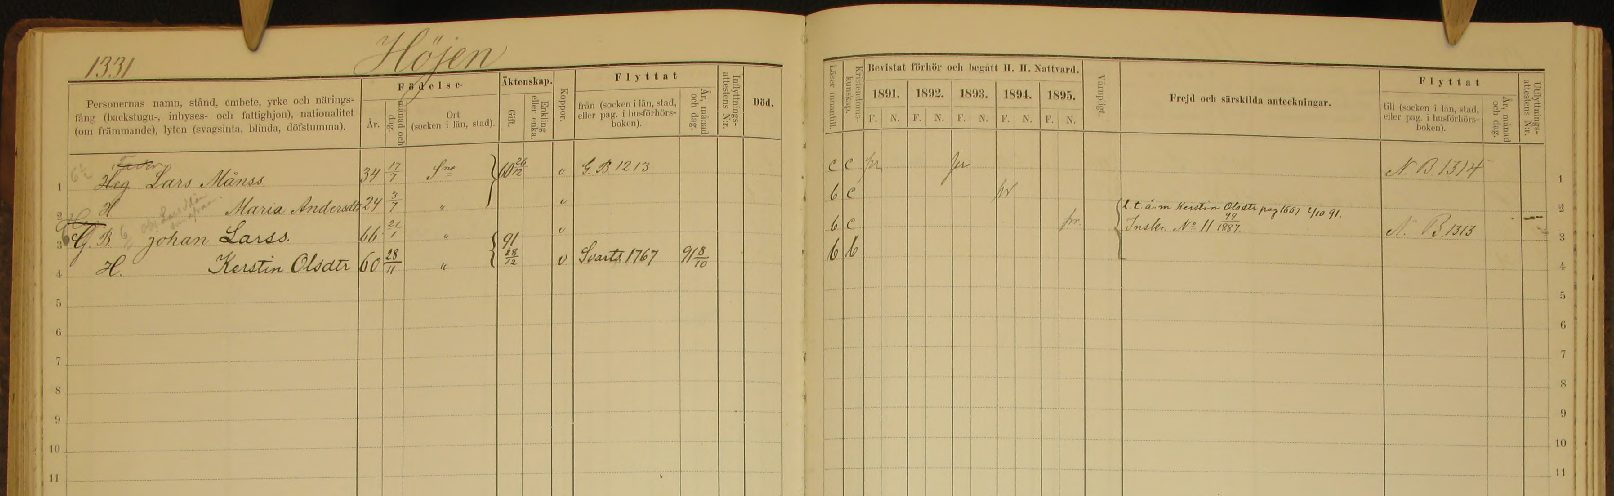 1331
Höjen
Personernas namn, stånd, embete, yrke och närings-
fång (backstugu-, inhyses- och fattighjon), nationalitet
(om främmande), lyten (svagsinta, blinda, döfstumma).
Födelse-
År.
månad och dag.
Ort
(socken i län, stad).
Äktenskap.
Gift.
Enkling eller enka.
Koppor.
Flyttat
från (socken i län, stad,
eller pag. i husförhörs-
boken).
År, månad och dag.
Inflyttnings-attestens N:r.
Död.
Läser innantill.
Kristendoms-kunskap.
Bevistat förhör och begått H. H. Nattvard.
1891. 1892. 1893. 1894. 1895.
F. N. F. N. F. N. F. N. F. N.
Frejd och särskilda anteckningar.
Flyttat
till (socken i län, stad,
eller pag. i husförhörs-
boken).
År, månad och dag.
Utflyttnings-attestens N:r.
1 Lars Månss 34 17/7 Sne 26/12 v G B 1213 c c fr N B 1314 1
2 H Maria Andersdtr 24 3/7 " v b c 2
3 G. B. Johan Larss. 66 21/1 " 91 v b c L. t. ä. m Kerstin Olsdtr pag 1667 2/10 91. Inskr. No 11 49/1887. N. B 1313 3
4 H. Kerstin Olsdtr 60 28/11 " 28/12 v Svarta 1767 91 8/10 b b 4
5 5
6 6
7 7
8 8
9 9
10 10
11 11